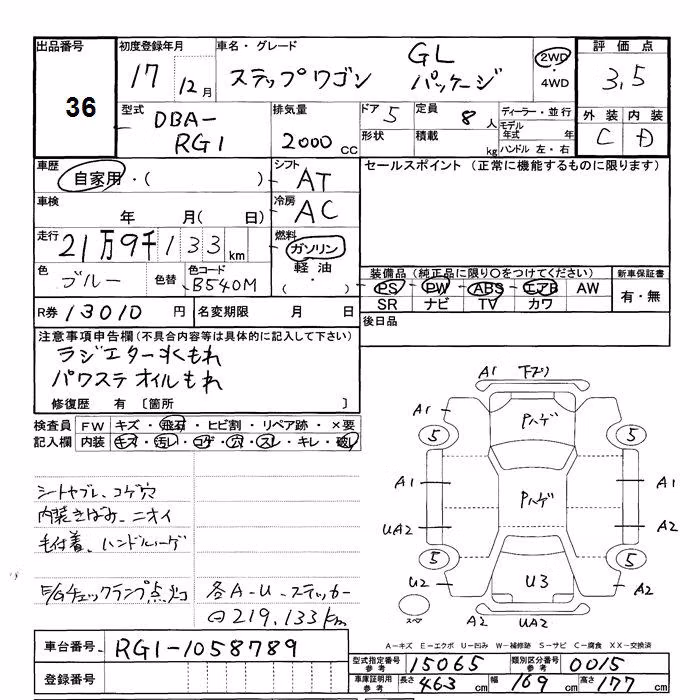 出品番号 初度登録年月 車名・グレード 評価点
36
17 12月 ステップワゴン GLパッケージ 2WD・4WD 3.5
外装 内装
C D
型式 排気量 ドア 5 定員 8人 ディーラー・並行
DBA-RG1 2000cc 形状 積載 kg モデル年式 年
ハンドル 左・右
車歴 自家用・( ) シフト AT セールスポイント (正常に機能するものに限ります)
車検 年 月( 日) 冷房 AC
走行 21万9千133km 燃料 ガソリン 軽油・( )
色 ブルー 色替 色コード B540M
装備品(純正品に限り○をつけてください) 新車保証書
PS PW ABS エアB AW 有・無
SR ナビ TV カワ
R券 13010円 名変期限 月 日 後日品
注意事項申告欄(不具合内容等は具体的に記入して下さい)
ラジエター水もれ
パワステオイルもれ
修復歴 有 〔箇所 〕
検査員記入欄 FW キズ・飛石・ヒビ割・リペア跡・×要
内装 キズ・汚レ・コゲ・穴・スレ・キレ・破レ
シートヤブレ、コゲ穴
内装きばみ、ニオイ
毛付着、ハンドルハゲ
E/Gチェックランプ点灯 各A-U、ステッカー
219,133km
A1 下ブリ
A1 Pハゲ A1
5 5
A1 Pハゲ A1
UA2 A2
5 5
U2 U3 A2
スペア A2 UA2
A-キズ E-エクボ U-凹み W-補修跡 S-サビ C-腐食 XX-交換済
車台番号 RG1-1058789
登録番号
型式指定番号 参考 15065 類別区分番号 参考 0015
車庫証明用 参考 長さ 463cm 幅 169cm 高さ 177cm